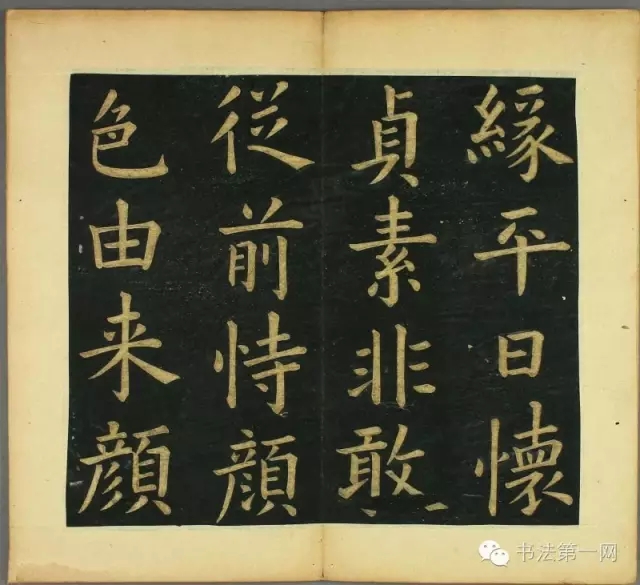 緣平日懷
貞素非敢
従前恃顔
色由来顔
书法第一网